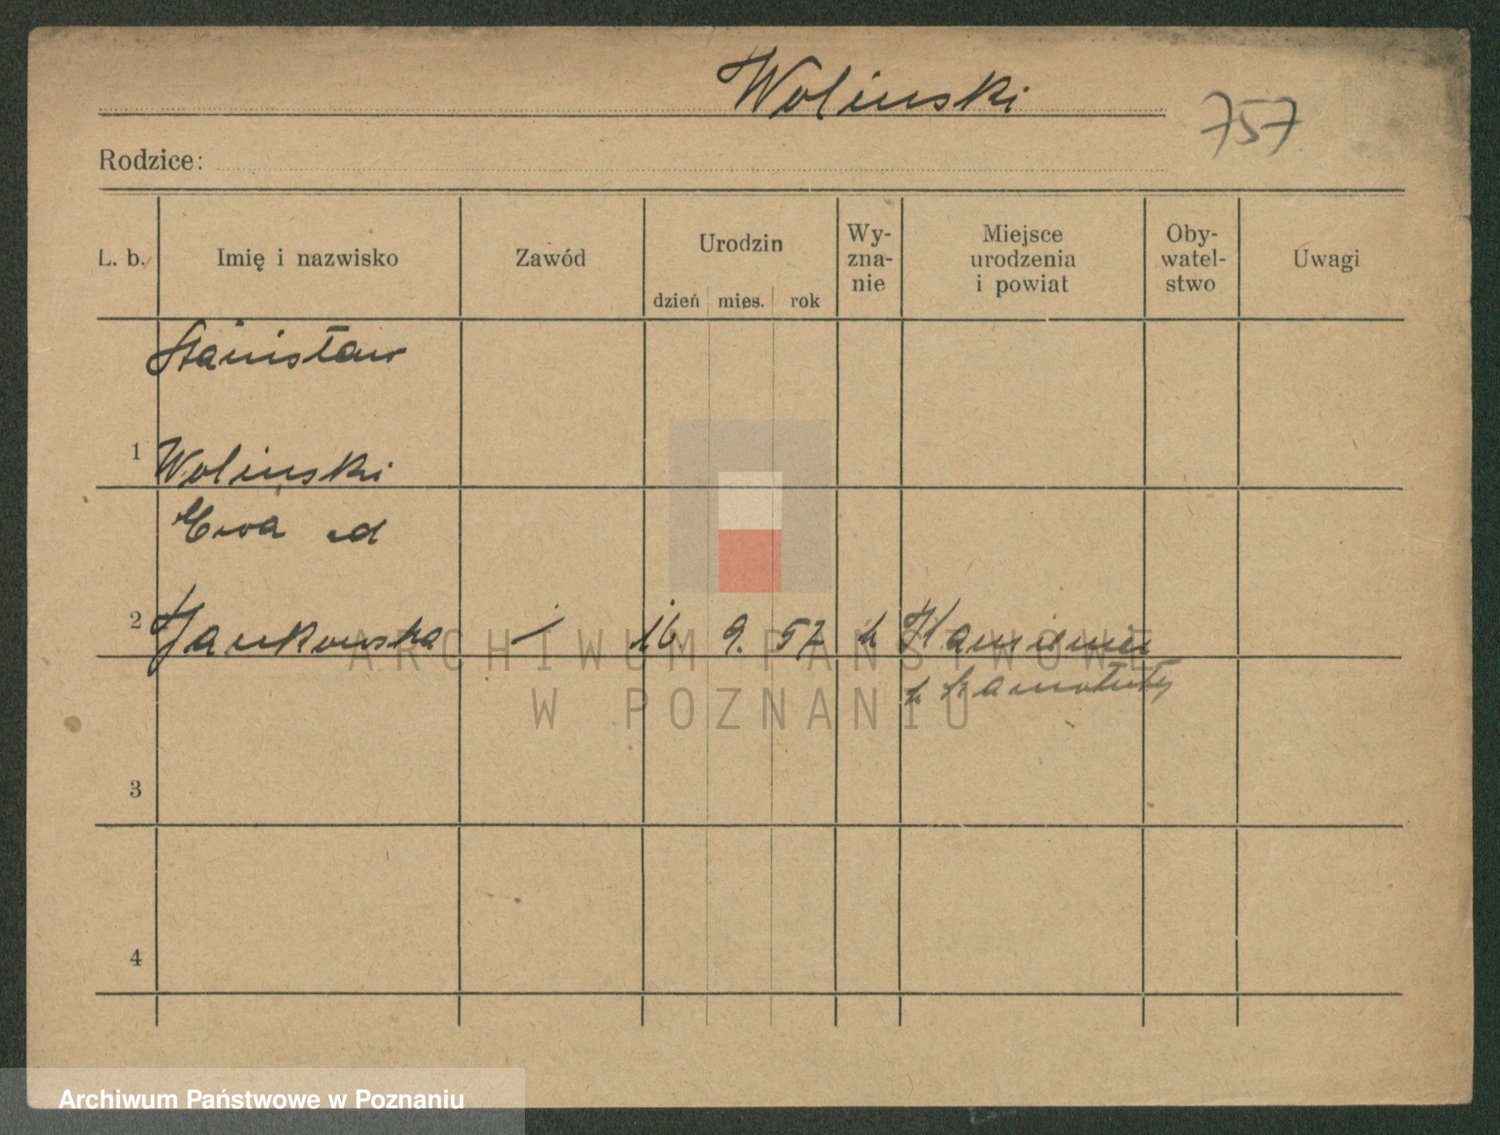 Wolinski
757
Rodzice:
L. b. Imię i nazwisko Zawód Urodzin Wy-zna-nie Miejsce urodzenia i powiat Oby-watel-stwo Uwagi
dzień mies. rok
Stanisław
1 Wolinski
Ewa
2 Jankowska 16 9. 57 k
ARCHIWUM PAŃSTWOWE
W POZNANIU
3
4
Archiwum Państwowe w Poznaniu